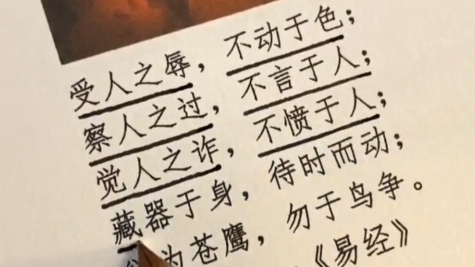 受人之辱，不动于色；
察人之过，不言于人；
觉人之诈，不愤于人；
藏器于身，待时而动；
为苍鹰，勿于鸟争。
《易经》